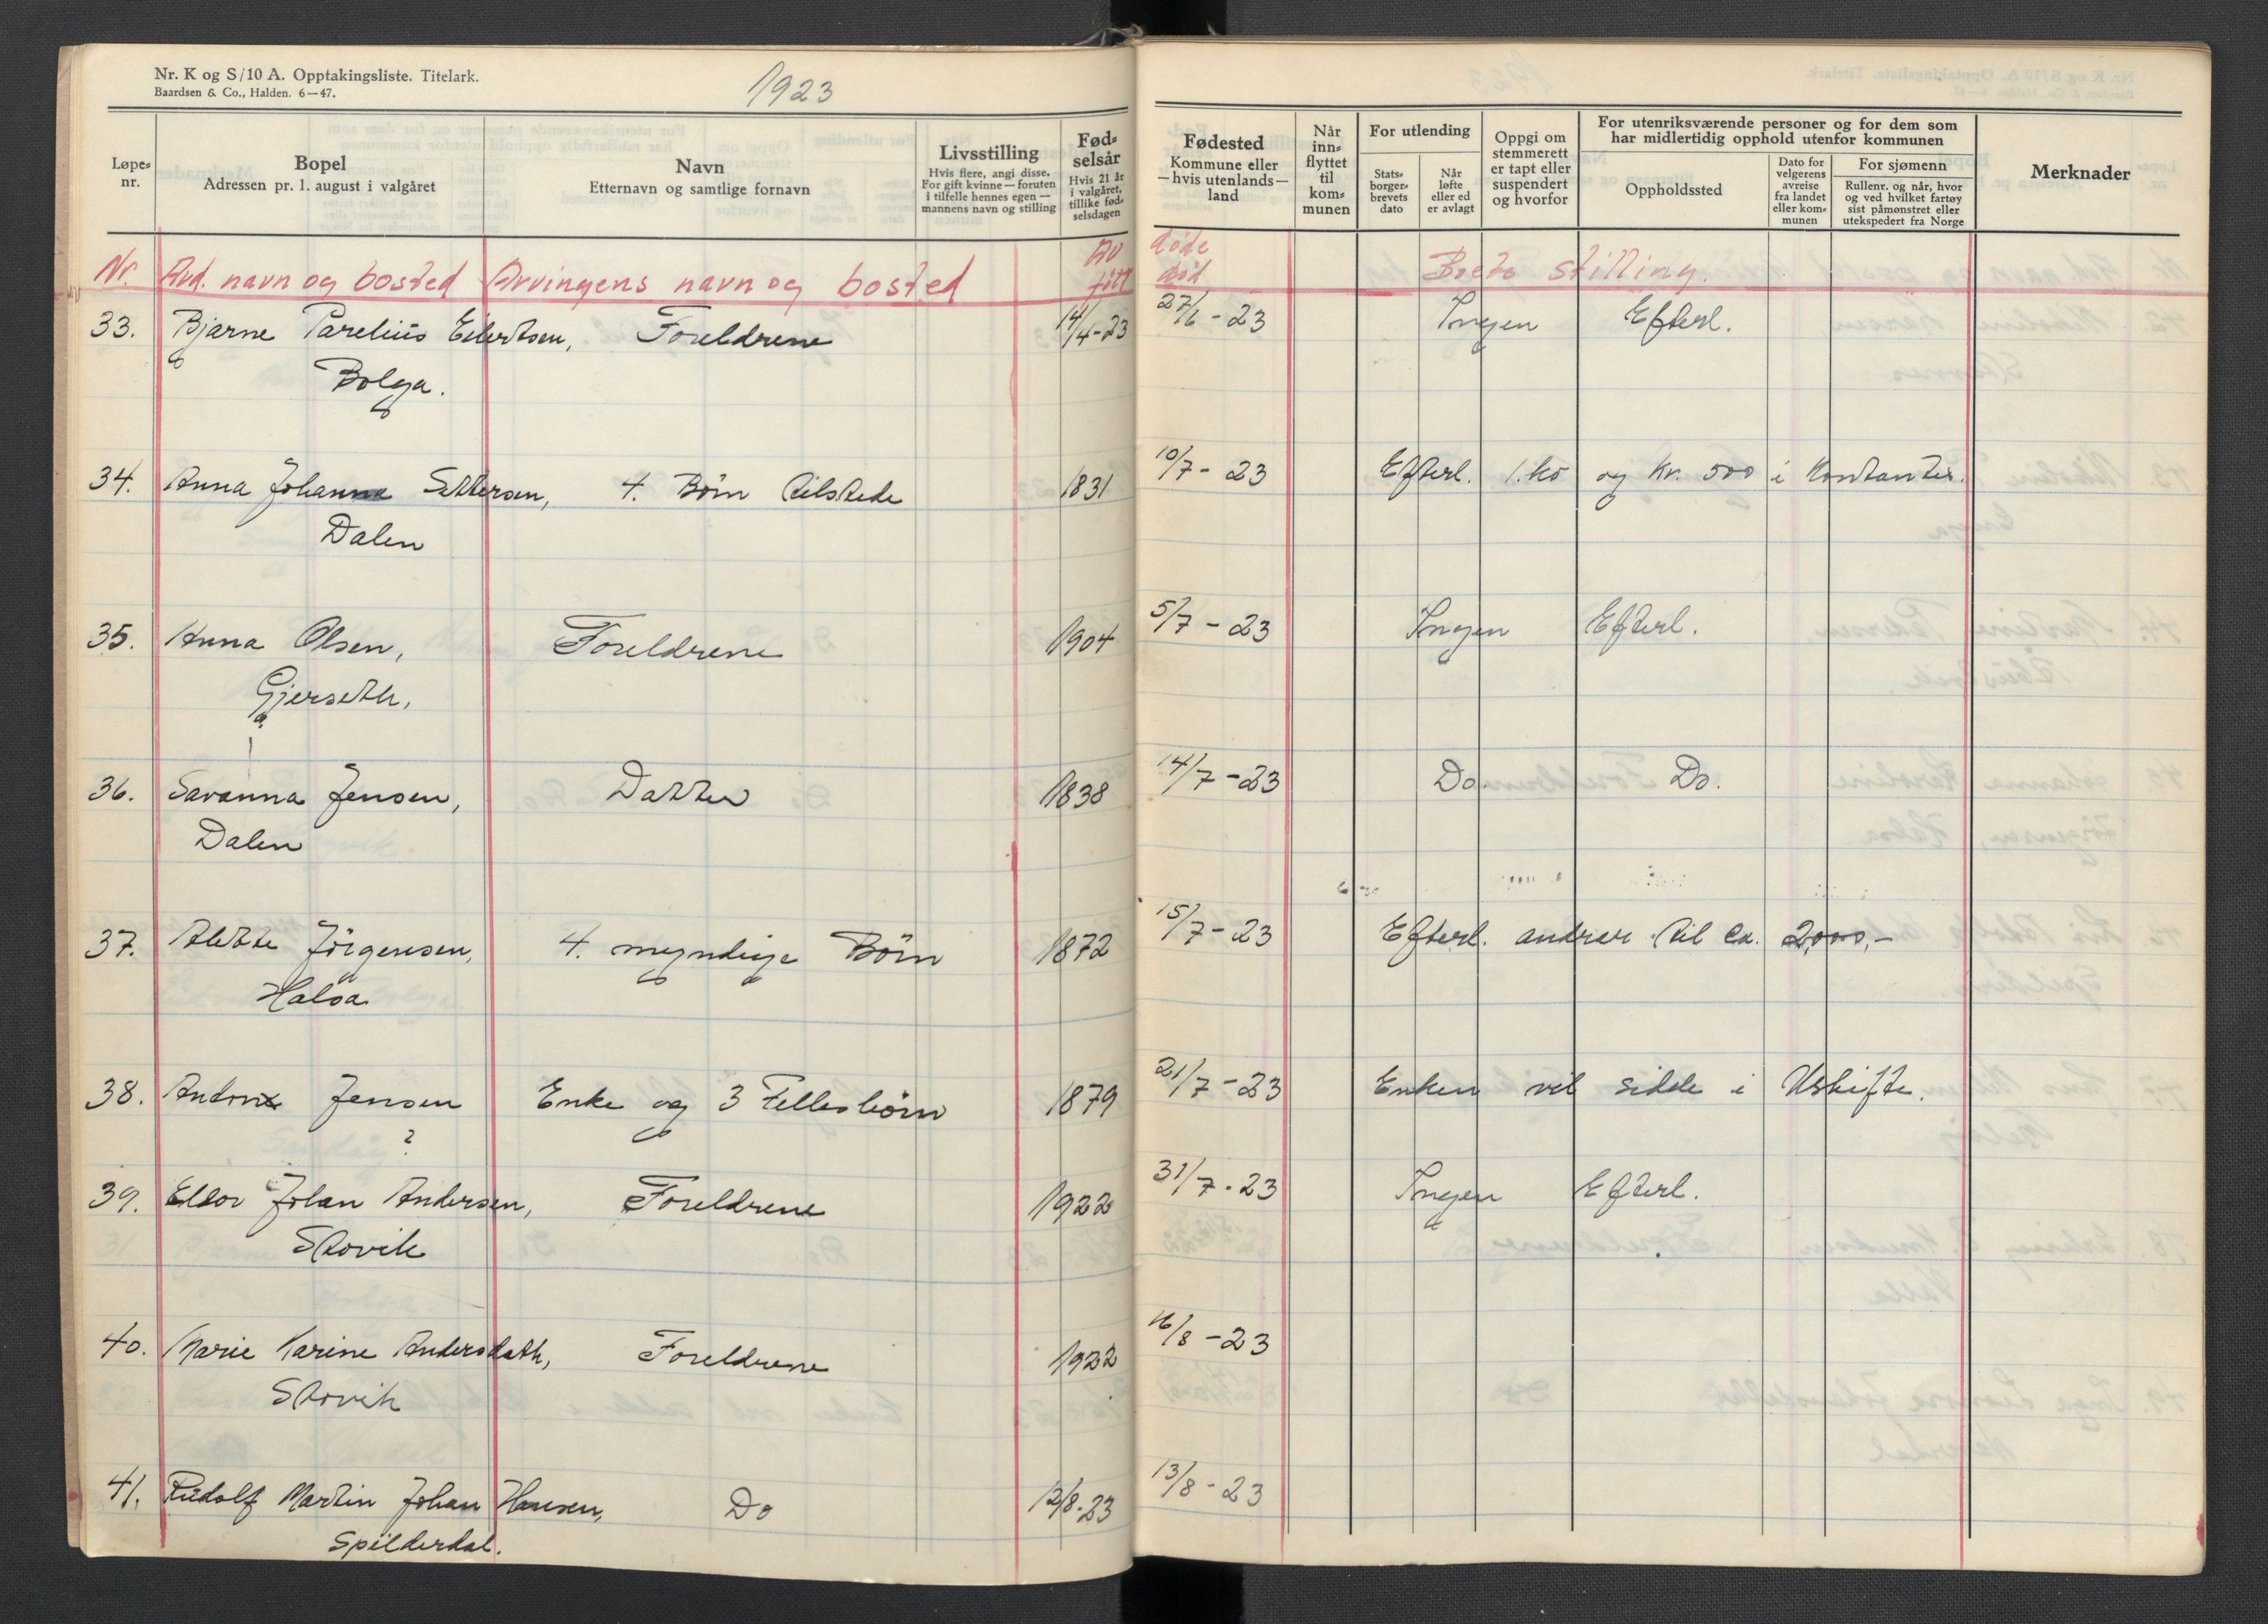 Nr. K og S/10 A. Opptakingsliste. Titelark.
Baardsen & Co., Halden. 6—47.
1923
Løpe-
nr.
Bopel
Adressen pr. 1. august i valgåret
Navn
Etternavn og samtlige fornavn
Livsstilling
Hvis flere, angi disse.
For gift kvinne — foruten
i tilfelle hennes egen —
mannens navn og stilling
Fød-
selsår
Hvis 21 år
i valgåret,
tillike fød-
selsdagen
Fødested
Kommune eller
— hvis utenlands —
land
Når
inn-
flyttet
til
kom-
munen
For utlending
Stats-
borger-
brevets
dato
Når
løfte
eller ed
er avlagt
Oppgi om
stemmerett
er tapt eller
suspendert
og hvorfor
For utenriksværende personer og for dem som
har midlertidig opphold utenfor kommunen
Oppholdssted
Dato for
velgerens
avreise
fra landet
eller kom-
munen
For sjømenn
Rullenr. og når, hvor
og ved hvilket fartøy
sist påmønstret eller
utekspedert fra Norge
Merknader
Nr. Avd. navn og bosted Arvingens navn og bosted Av døde
født død Boets stilling.
33. Bjarne Parelius Eilertsen, Foreldrene 14/4-23 27/6 - 23 Ingen Efterl.
Bolga.
34. Anna Johanna Settersen, 4. Börn tilstede 1831 10/7 - 23 Efterl. 1. ko og Kr. 500 i Kontanter.
Dalen
35. Anna Olsen, Foreldrene 1904 5/7 - 23 Ingen Efterl.
Gjerseth,
36. Savanna Jensen, Datter 1838 14/7 - 23 Do. Do.
Dalen
37. Alette Jörgensen, 4. myndige Börn 1872 15/7 - 23 Efterl. andrar til ca. 2,000,-
Halsa
38. Anton Jensen Enke og 3 Fellesbörn 1879 21/7 - 23 Enken vil sidde i Uskifte.
?
39. Eldor Johan Andersen, Foreldrene 1922 31/7 - 23 Ingen Efterl.
Stovik
40. Marie Karine Andersdath, Foreldrene 1922 16/8 - 23
Stovik
41. Rudolf Martin Johan Hansen, Do 12/8-23 13/8 - 23
Spilderdal.